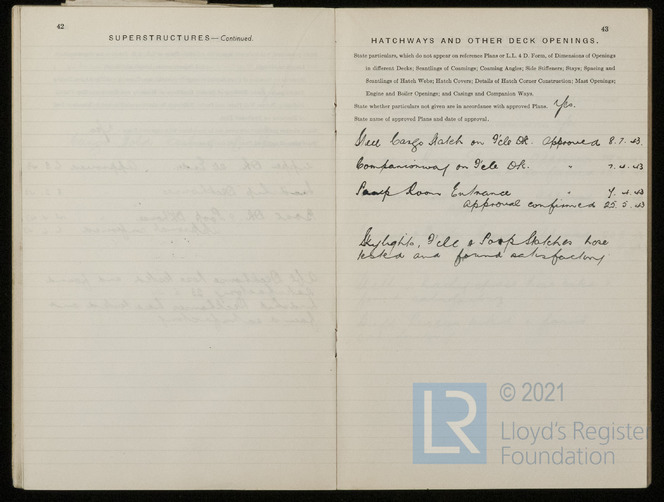 42
SUPERSTRUCTURES—Continued.
43
HATCHWAYS AND OTHER DECK OPENINGS.
State particulars, which do not appear on reference Plans or L.L. 4 D. Form, of Dimensions of Openings
in different Decks; Scantlings of Coamings; Coaming Angles; Side Stiffeners; Stays; Spacing and
Scantlings of Hatch Webs; Hatch Covers; Details of Hatch Corner Construction; Mast Openings;
Engine and Boiler Openings; and Casings and Companion Ways.
State whether particulars not given are in accordance with approved Plans. Yes.
State name of approved Plans and date of approval.
Steel Cargo Hatch on F'cle Dk. Approved 8.7.43
Companionway on F'cle Dk. " 7.4.43
Poop Room Entrance " 4.43
approval confirmed 25.5.43
Skylights, F'cle & Poop Hatches hose
tested and found satisfactory
LR
© 2021
Lloyd's Register
Foundation